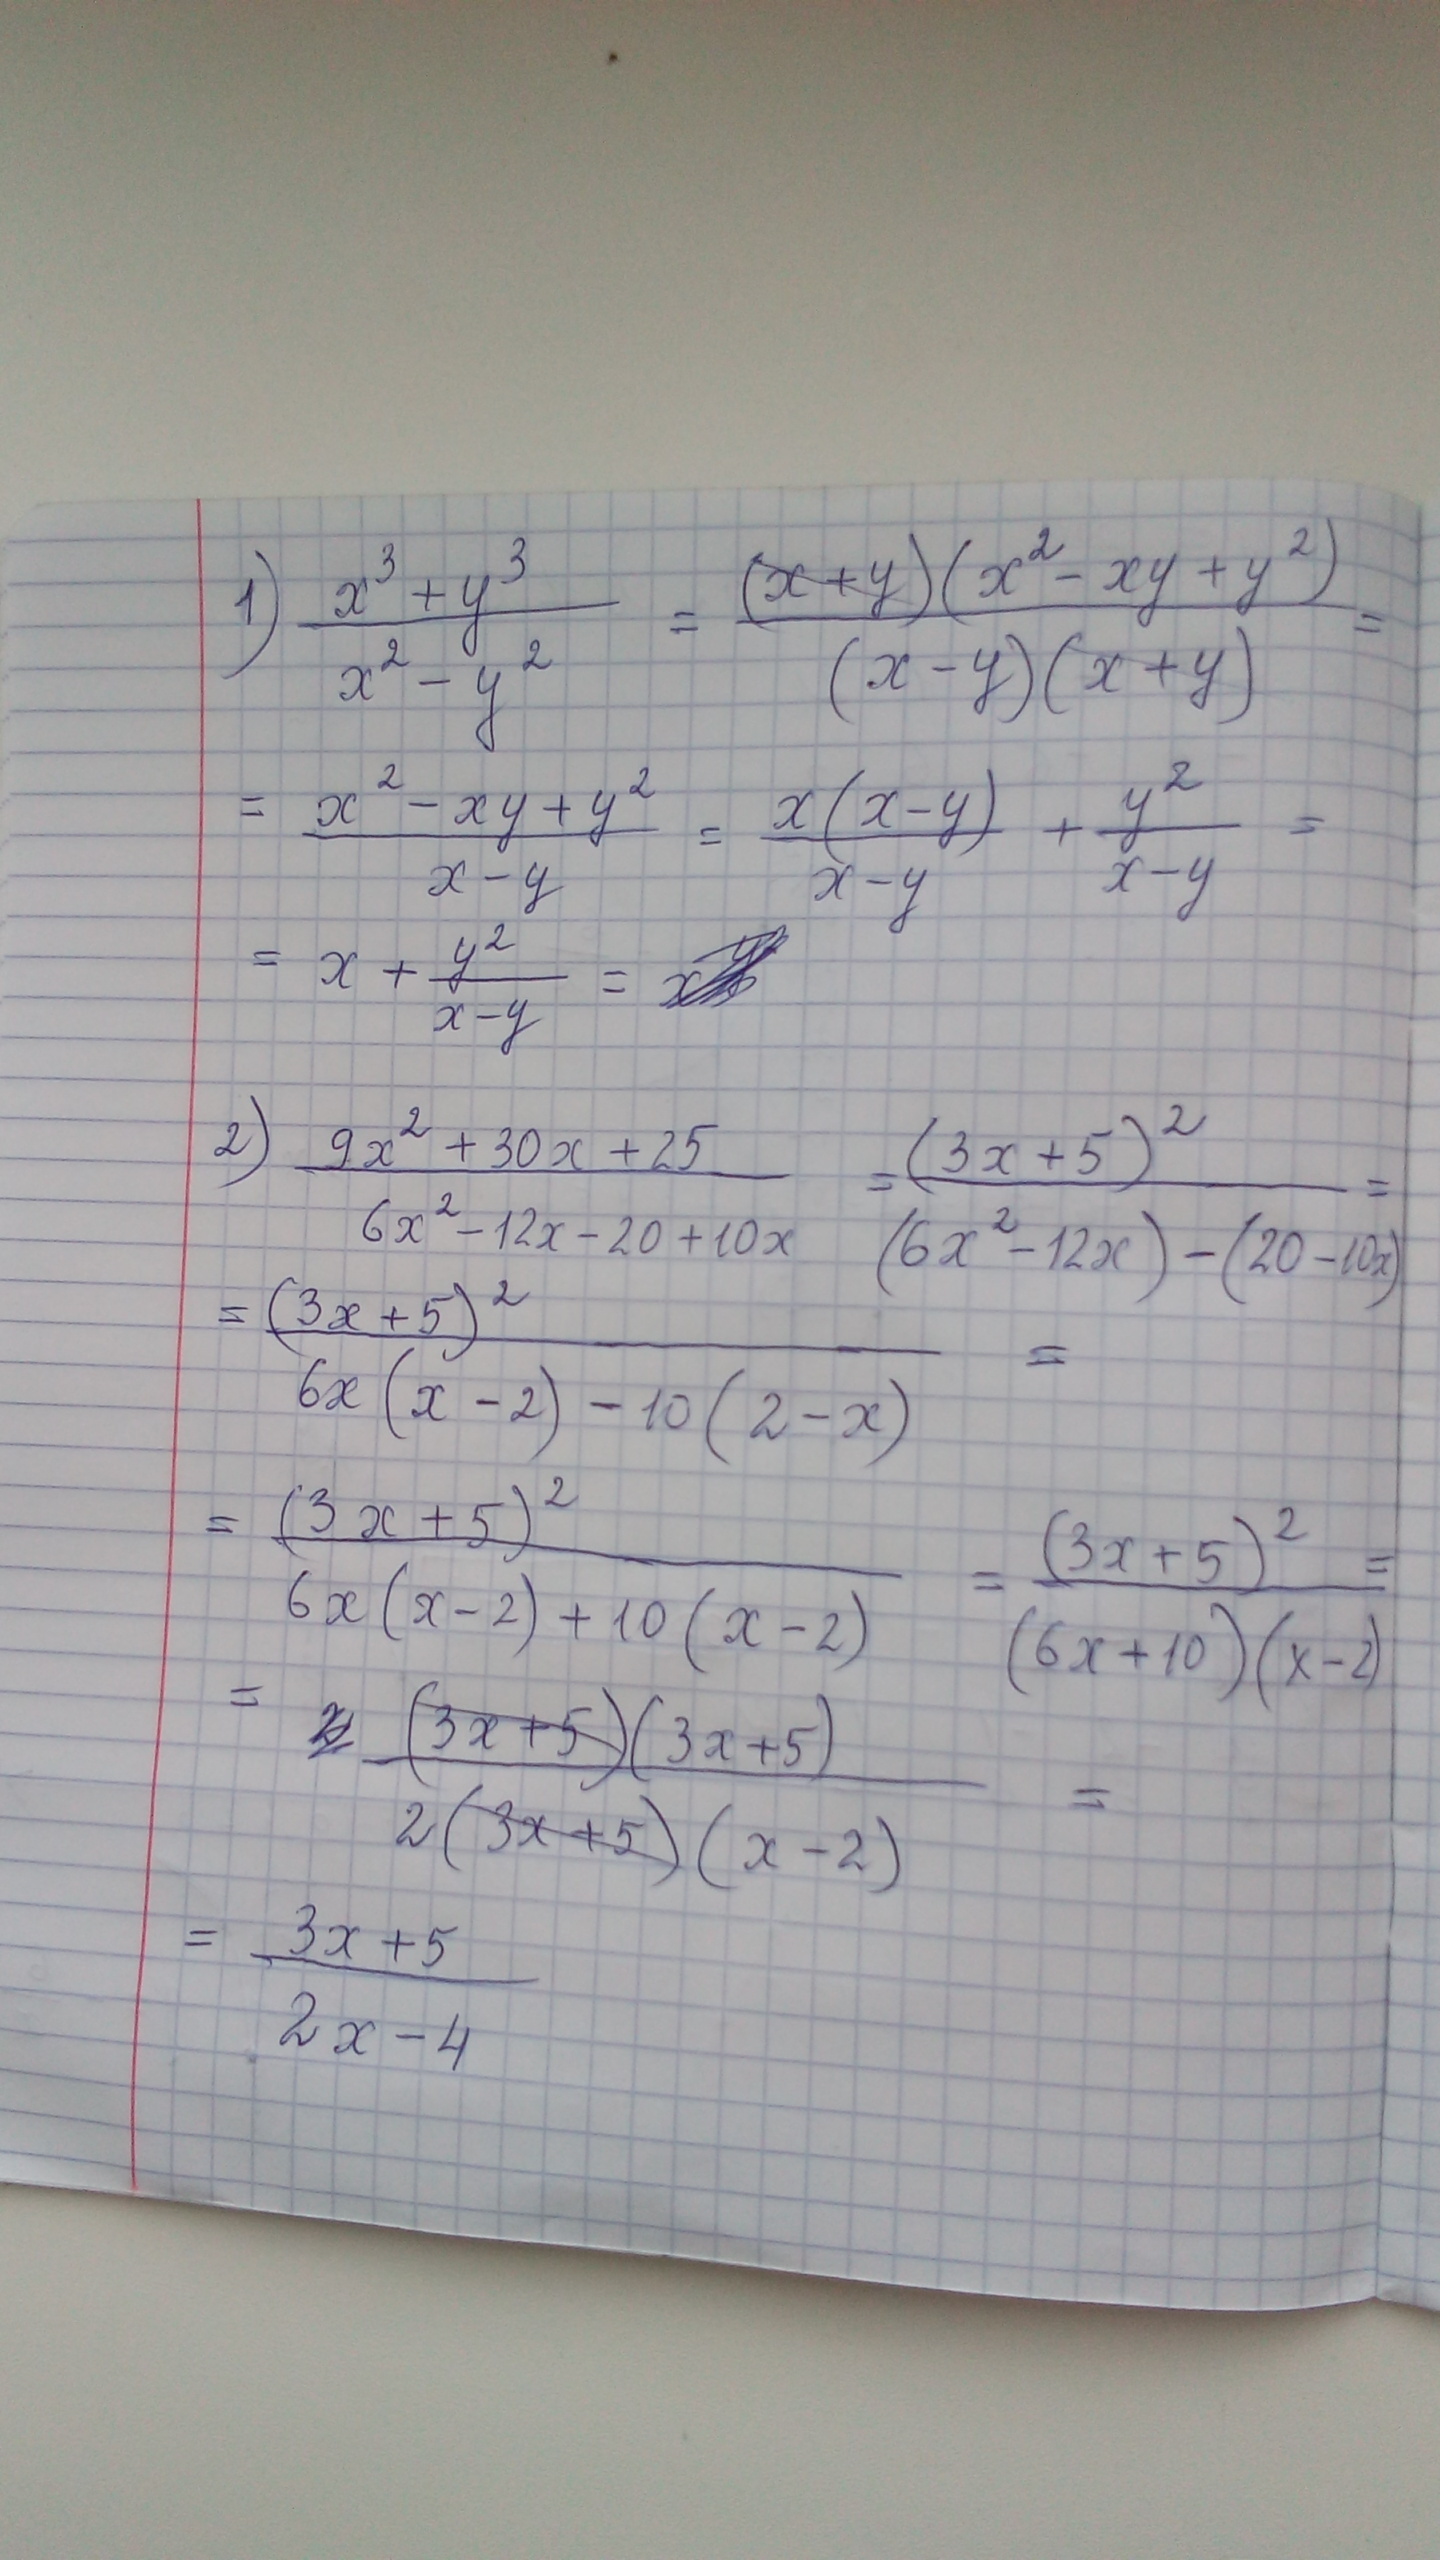 1) (x³+y³)/(x²-y²) = ((x+y)(x²-xy+y²))/((x-y)(x+y)) =
= (x²-xy+y²)/(x-y) = (x(x-y))/(x-y) + y²/(x-y) =
= x + y²/(x-y) =
2) (9x²+30x+25)/(6x²-12x-20+10x) = (3x+5)²/((6x²-12x)-(20-10x)) =
= (3x+5)²/(6x(x-2)-10(2-x)) =
= (3x+5)²/(6x(x-2)+10(x-2)) = (3x+5)²/((6x+10)(x-2)) =
= ((3x+5)(3x+5))/(2(3x+5)(x-2)) =
= (3x+5)/(2x-4)